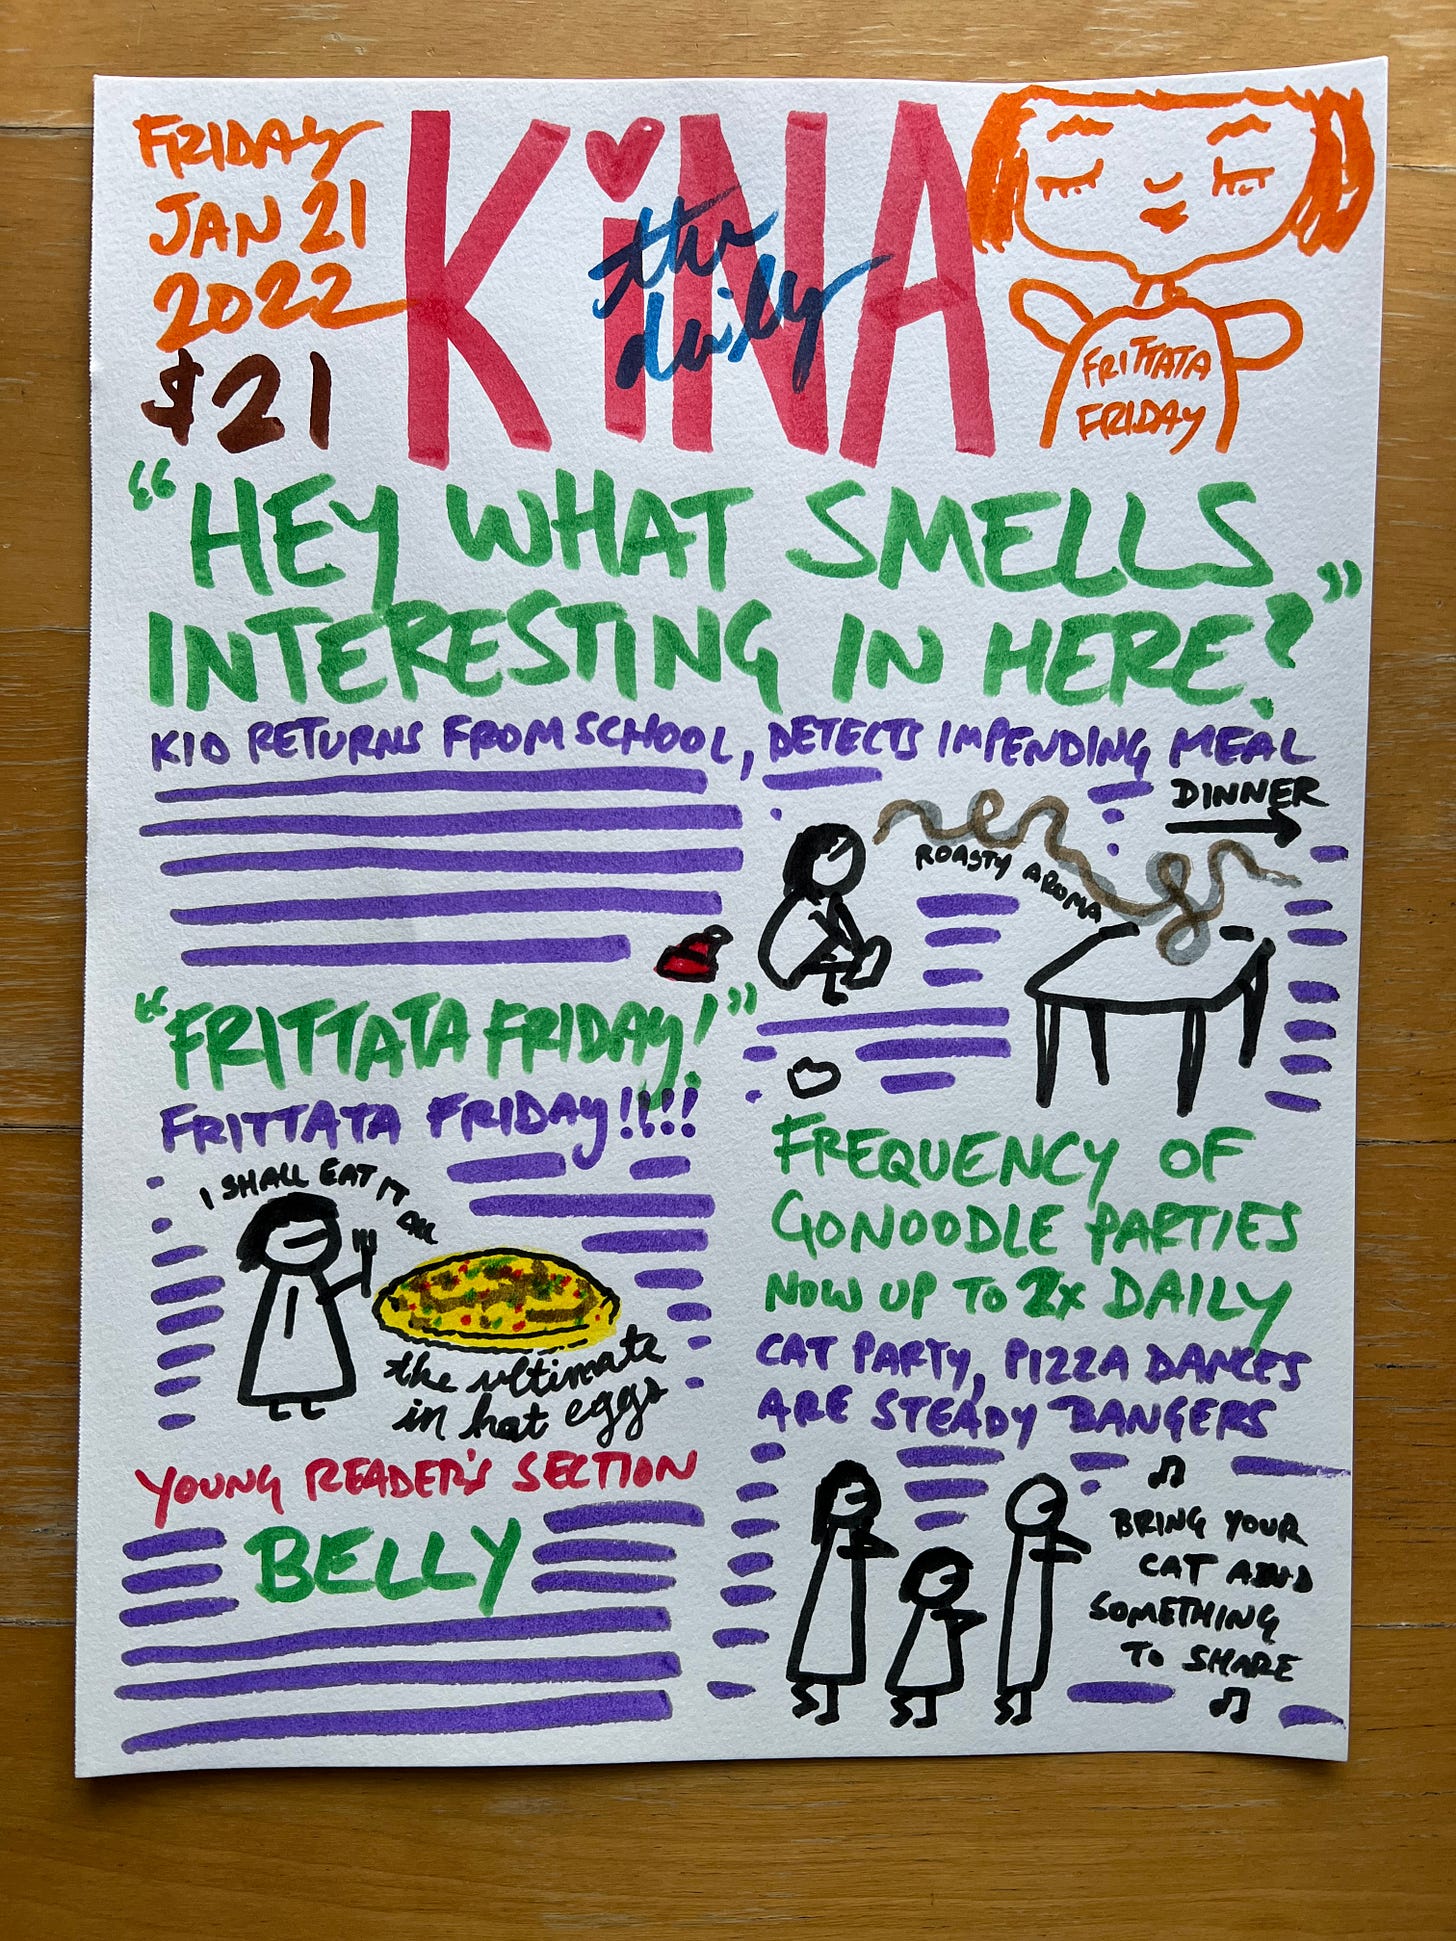 FRIDAY
JAN 21
2022
$21
KiNA
the
daily
FRITTATA
FRIDAY
"HEY WHAT SMELLS
INTERESTING IN HERE?"
KID RETURNS FROM SCHOOL, DETECTS IMPENDING MEAL
DINNER
ROASTY AROMA
"FRITTATA FRIDAY!"
FRITTATA FRIDAY!!!!
I SHALL EAT IT
ALL
the ultimate
in hot eggs
YOUNG READER'S SECTION
BELLY
FREQUENCY OF
GONOODLE PARTIES
NOW UP TO 2x DAILY
CAT PARTY, PIZZA DANCES
ARE STEADY BANGERS
♫
BRING YOUR
CAT AND
SOMETHING
TO SHARE
♫